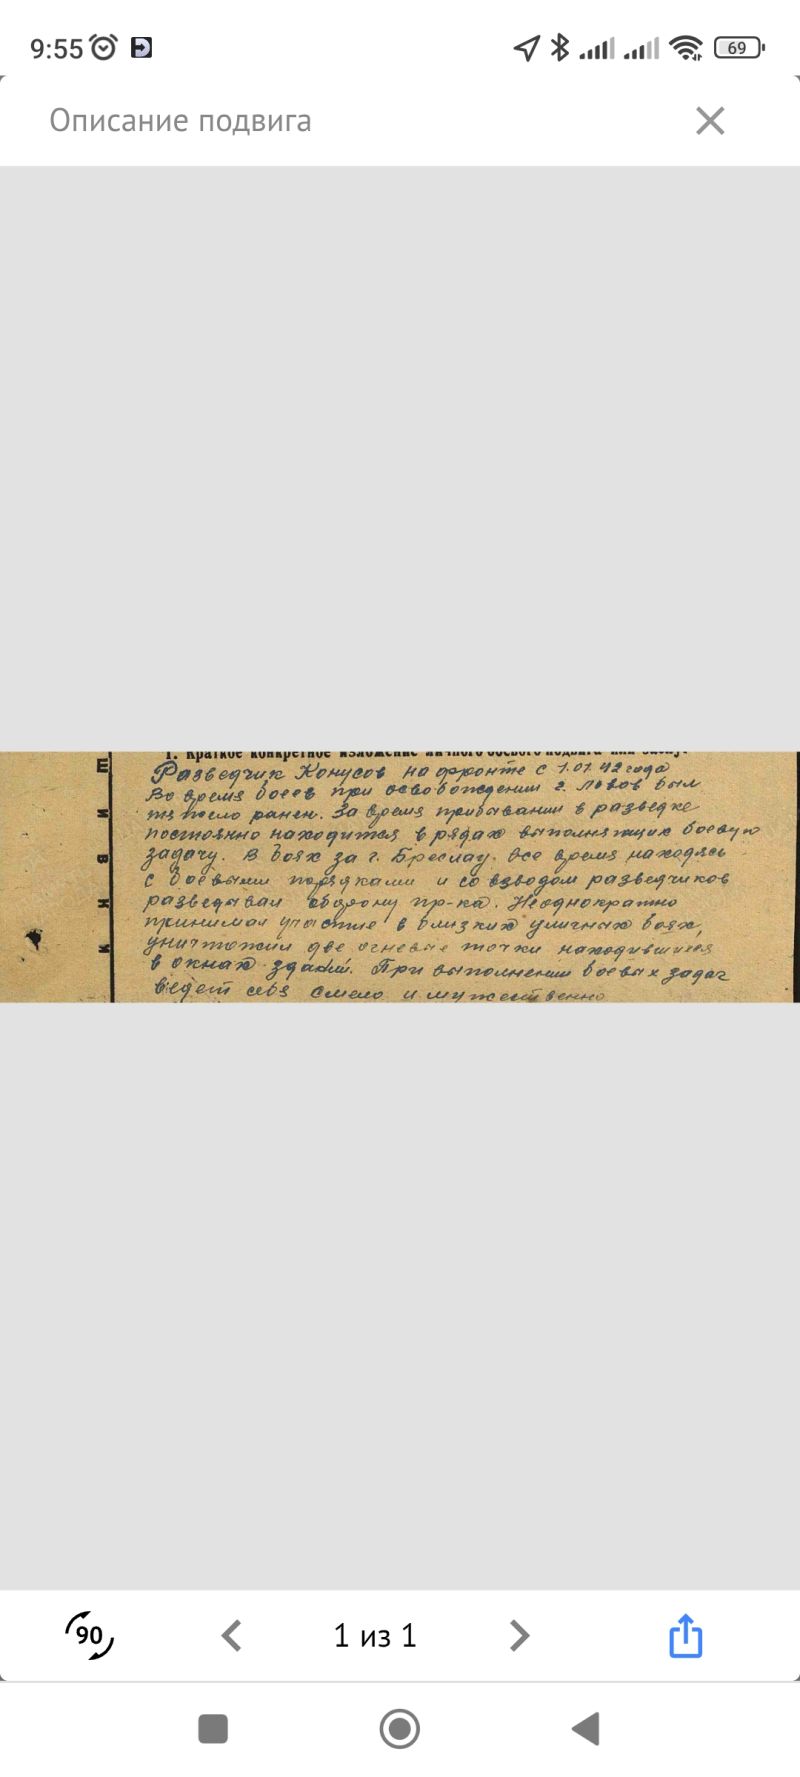 9:55
69
Описание подвига
1. Краткое конкретное изложение личного боевого подвига или заслуг
Разведчик Конусов на фронте с 1.01.42 года
Во время боев при освобождении г. Львов был
тяжело ранен. За время прибывании в разведке
постоянно находится в рядах выполняющих боевую
задачу. В боях за г. Бреслау все время находясь
с боевыми порядками и со взводом разведчиков
разведывал оборону пр-ка. Неоднократно
принимал участие в близких уличных боях,
уничтожил две огневые точки находившихся
в окнах зданий. При выполнении боевых задач
ведет себя смело и мужественно
Ш
И
В
К
И
90
1 из 1